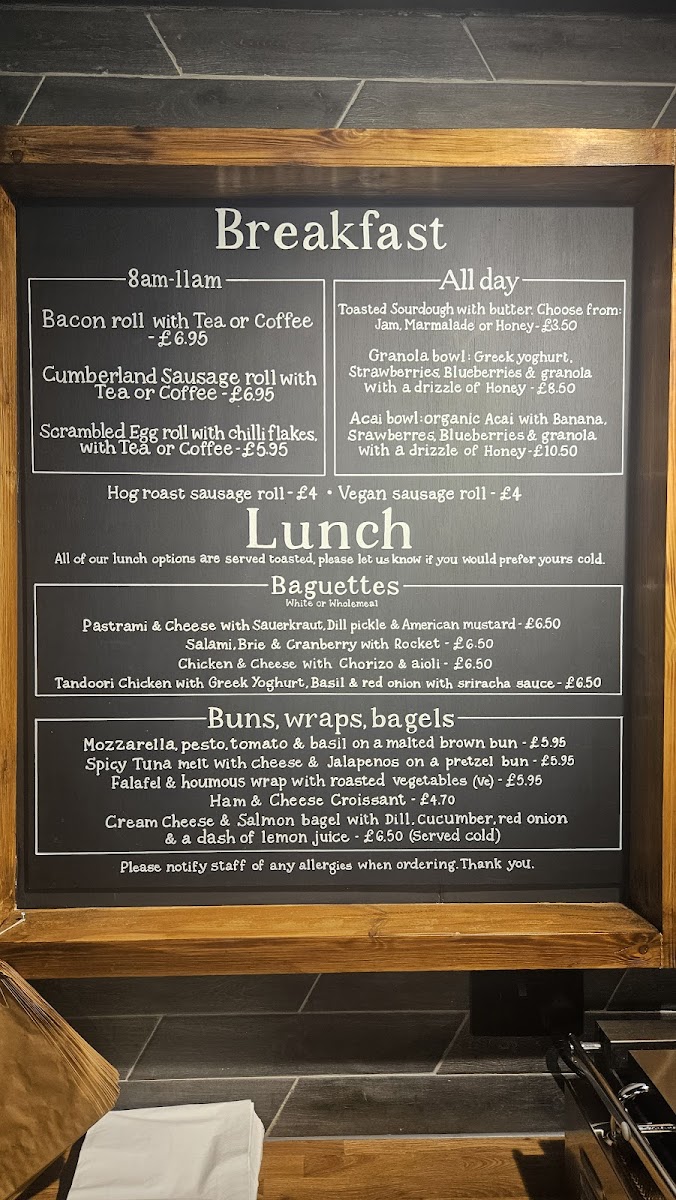 Breakfast
8am-11am
Bacon roll with Tea or Coffee
- £6.95
Cumberland Sausage roll with
Tea or Coffee - £6.95
Scrambled Egg roll with chilli flakes,
with Tea or Coffee - £5.95
All day
Toasted Sourdough with butter. Choose from:
Jam, Marmalade or Honey - £3.50
Granola bowl: Greek yoghurt,
Strawberries, Blueberries & granola
With a drizzle of Honey - £8.50
Acai bowl: organic Acai with Banana,
Srawberres, Blueberries & granola
With a drizzle of Honey - £10.50
Hog roast sausage roll - £4 • Vegan sausage roll - £4
Lunch
All of our lunch options are served toasted, please let us know if you would prefer yours cold.
Baguettes
White or Wholemeal
Pastrami & Cheese with Sauerkraut, Dill pickle & American mustard - £6.50
Salami, Brie & Cranberry with Rocket - £6.50
Chicken & Cheese with Chorizo & aioli - £6.50
Tandoori Chicken with Greek Yoghurt, Basil & red onion with sriracha sauce - £6.50
Buns, wraps, bagels
Mozzarella, pesto, tomato & basil on a malted brown bun - £5.95
Spicy Tuna melt with cheese & Jalapenos on a pretzel bun - £5.95
Falafel & houmous wrap with roasted vegetables (ve) - £5.95
Ham & Cheese Croissant - £4.70
Cream Cheese & Salmon bagel with Dill, Cucumber, red onion
& a dash of lemon juice - £6.50 (Served cold)
Please notify staff of any allergies when ordering. Thank you.